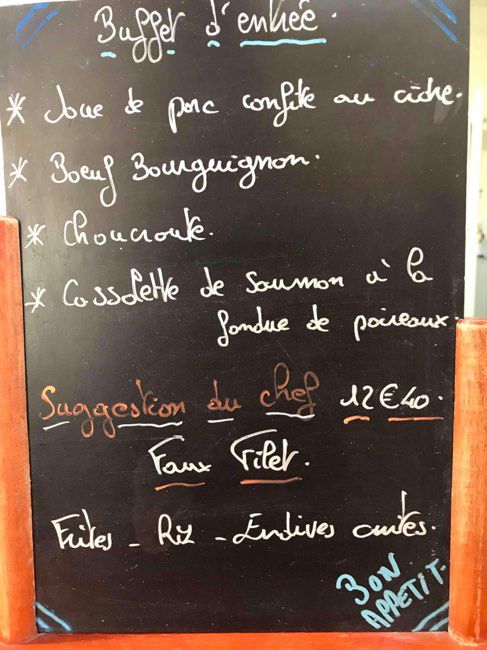 Buffet d'entrée.
* Joue de porc confite au cidre.
* Boeuf Bourguignon.
* Choucroute.
* Cassolette de saumon à la
fondue de poireaux.
Suggestion du chef 12€40.
Faux Filet.
Frites - Riz - Endives cuites.
BON
APPETIT.